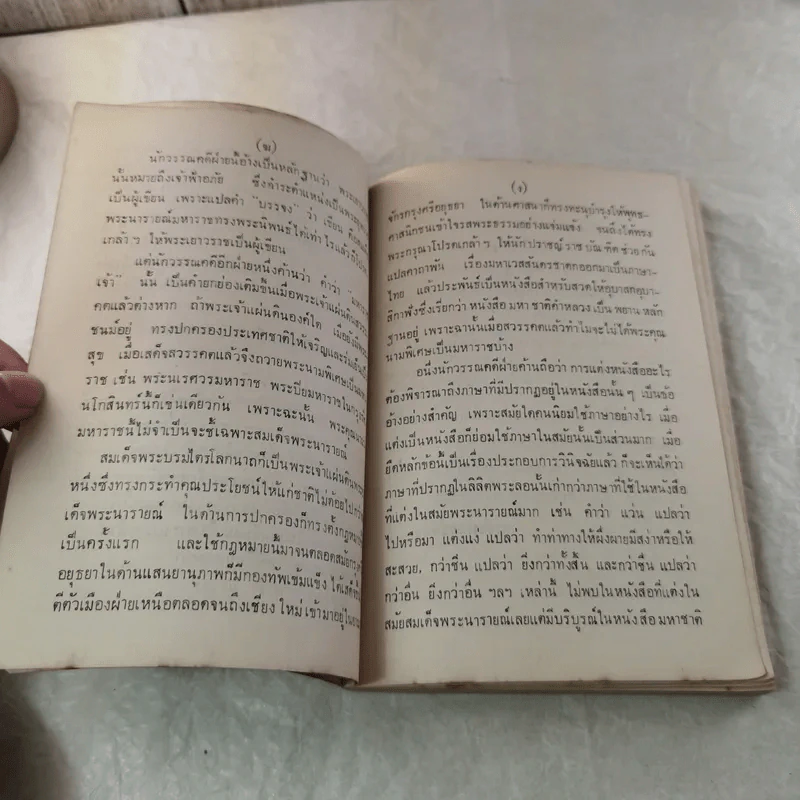 (ฆ)
นักวรรณคดีฝ่ายนี้อ้างเป็นหลักฐานว่า
นั้นหมายถึงเจ้าฟ้าอภัย ซึ่งดำรงตำแหน่งเป็น
เป็นผู้เขียน เพราะแปลคำ "บรรจง" ว่า เขียน
พระนารายณ์มหาราชทรงพระนิพนธ์ได้เท่าไรแล้ว
เกล้าฯ ให้พระเยาวราชเป็นผู้เขียน
แต่นักวรรณคดีอีกฝ่ายหนึ่งค้านว่า คำว่า
เจ้า" นั้น เป็นคำยกย่องเติมขึ้นเมื่อพระเจ้าแผ่นดิน
คตแล้วต่างหาก ถ้าพระเจ้าแผ่นดินองค์ใด เมื่อยังมี
ชนม์อยู่ ทรงปกครองประเทศชาติให้เจริญและร่มเย็น
สุข เมื่อเสด็จสวรรคตแล้วจึงถวายพระนามพิเศษเป็น
ราช เช่น พระนเรศวรมหาราช พระปิยมหาราชในกรุง
นโกสินทร์นี้ก็เช่นเดียวกัน เพราะฉะนั้น พระคุณนาม
มหาราชนี้ไม่จำเป็นจะชี้เฉพาะสมเด็จพระนารายณ์
สมเด็จพระบรมไตรโลกนาถก็เป็นพระเจ้าแผ่นดิน
หนึ่งซึ่งทรงกระทำคุณประโยชน์ให้แก่ชาติไม่ด้อยไปกว่า
เด็จพระนารายณ์ ในด้านการปกครองก็ทรงตั้งกฎหมาย
เป็นครั้งแรก และใช้กฎหมายนี้มาจนตลอดสมัยกรุง
อยุธยาในด้านแสนยานุภาพก็มีกองทัพเข้มแข็ง ได้
ตีตัวเมืองฝ่ายเหนือตลอดจนถึงเชียงใหม่เข้ามาอยู่ใน
(ง)
จักรกรุงศรีอยุธยา ในด้านศาสนาก็ทรงทะนุบำรุงให้พุทธ-
ศาสนิกชนเข้าใจรสพระธรรมอย่างแจ่มแจ้ง จนถึงได้ทรง
พระกรุณาโปรดเกล้าฯ ให้นักปราชญ์ราชบัณฑิตช่วยกัน
แปลคาถาพัน เรื่องมหาเวสสันดรชาดกออกมาเป็นภาษา-
ไทย แล้วประพันธ์เป็นหนังสือสำหรับสวดให้อุบาสกอุบา-
สิกาฟังซึ่งเรียกว่า หนังสือมหาชาติคำหลวง เป็นพยานหลัก
ฐานอยู่ เพราะฉะนั้นเมื่อสวรรคตแล้วทำไมจะไม่ได้พระคุณ
นามพิเศษเป็นมหาราชบ้าง
อนึ่งนักวรรณคดีฝ่ายค้านถือว่า การแต่งหนังสืออะไร
ต้องพิจารณาถึงภาษาที่มีปรากฏอยู่ในหนังสือนั้น ๆ เป็นข้อ
อ้างอย่างสำคัญ เพราะสมัยใดคนนิยมใช้ภาษาอย่างไร เมื่อ
แต่งเป็นหนังสือก็ย่อมใช้ภาษาในสมัยนั้นเป็นส่วนมาก เมื่อ
ยึดหลักข้อนี้เป็นเรื่องประกอบการวินิจฉัยแล้ว ก็จะเห็นได้ว่า
ภาษาที่ปรากฏในลิลิตพระลอนั้นเก่ากว่าภาษาที่ใช้ในหนังสือ
ที่แต่งในสมัยพระนารายณ์มาก เช่น คำว่า แว่น แปลว่า
ไปหรือมา แต่งแง่ แปลว่า ทำท่าทางให้ผึ่งผายมีสง่าหรือให้
สะสวย, กว่าชื่น แปลว่า ยิ่งกว่าทั้งสิ้น และกว่าชื่น แปลว่า
กว่าอื่น ยิ่งกว่าอื่น ฯลฯ เหล่านี้ ไม่พบในหนังสือที่แต่งใน
สมัยสมเด็จพระนารายณ์เลยแต่มีบริบูรณ์ในหนังสือมหาชาติ